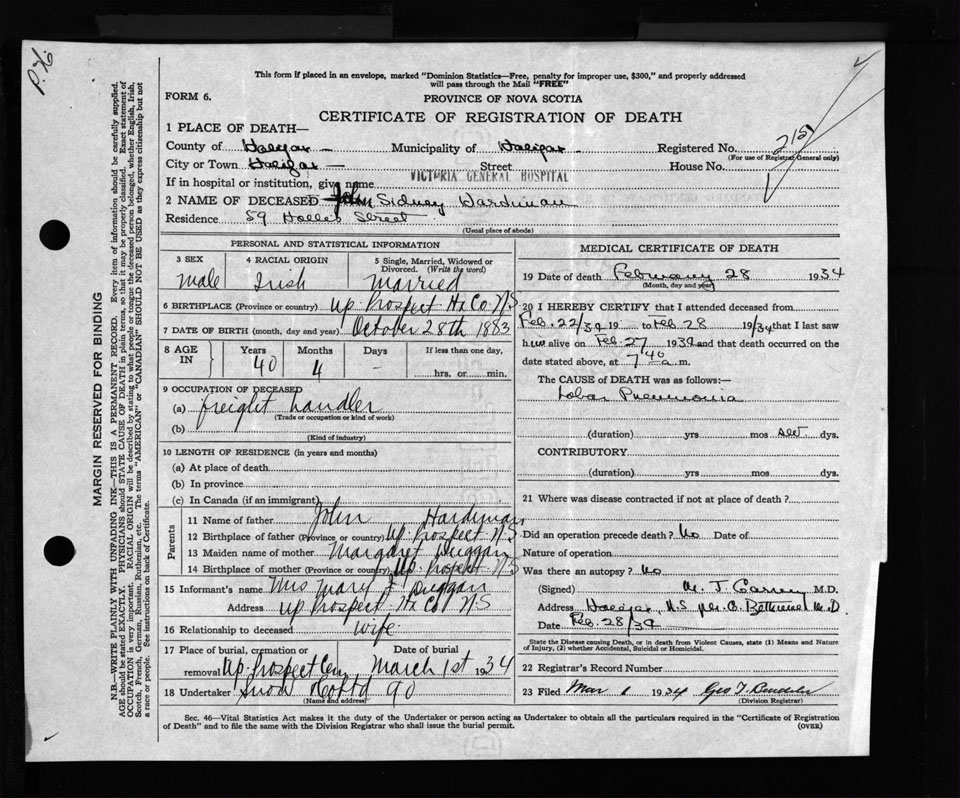 P.X.
This form if placed in an envelope, marked "Dominion Statistics—Free, penalty for improper use, $300," and properly addressed
will pass through the Mail "FREE"
FORM 6.
PROVINCE OF NOVA SCOTIA
CERTIFICATE OF REGISTRATION OF DEATH
1 PLACE OF DEATH—
County of Halifax Municipality of Halifax Registered No. 215
(For use of Registrar General only)
City or Town Halifax Street House No.
If in hospital or institution, give name VICTORIA GENERAL HOSPITAL
2 NAME OF DECEASED John Sidney Hardiman
Residence 59 Hollis Street
(Usual place of abode)
PERSONAL AND STATISTICAL INFORMATION
3 SEX 4 RACIAL ORIGIN 5 Single, Married, Widowed or Divorced. (Write the word)
Male Irish Married
6 BIRTHPLACE (Province or country) Up. Prospect Hx Co. N.S
7 DATE OF BIRTH (month, day and year) October 28th 1883
8 AGE IN Years Months Days If less than one day,
40 4 - hrs. or min.
9 OCCUPATION OF DECEASED
(a) freight handler
(Trade or occupation or kind of work)
(b)
(Kind of industry)
10 LENGTH OF RESIDENCE (in years and months)
(a) At place of death
(b) In province
(c) In Canada (if an immigrant)
Parents
11 Name of father John Hardiman
12 Birthplace of father (Province or country) Up. Prospect N.S
13 Maiden name of mother Margaret Duggan
14 Birthplace of mother (Province or country) Up. Prospect N.S
15 Informant's name Mrs Mary J Duggan
Address Up Prospect Hx Co N.S
16 Relationship to deceased wife
17 Place of burial, cremation or removal Up. Prospect Cem Date of burial March 1st 1934
18 Undertaker Snow Co Ltd 90
(Name and address)
MEDICAL CERTIFICATE OF DEATH
19 Date of death February 28 1934
(Month, day and year)
20 I HEREBY CERTIFY that I attended deceased from
Feb. 22/34 19 to Feb 28 19/34 that I last saw
him alive on Feb. 27 1934 and that death occurred on the
date stated above, at 7 40 a.m.
The CAUSE OF DEATH was as follows:—
Lobar Pneumonia
(duration) yrs mos dys.
CONTRIBUTORY
(duration) yrs mos dys.
21 Where was disease contracted if not at place of death?
Did an operation precede death? No Date of
Nature of operation
Was there an autopsy? No
(Signed) M. J. Carney M.D.
Address Halifax, N.S. M.D.
Date Feb. 28/34
State the Disease causing Death, or in death from Violent Causes, state (1) Means and Nature
of Injury, (2) whether Accidental, Suicidal or Homicidal.
22 Registrar's Record Number
23 Filed Mar 1 1934 Geo T.
(Division Registrar)
Sec. 46—Vital Statistics Act makes it the duty of the Undertaker or person acting as Undertaker to obtain all the particulars required in the "Certificate of Registration
of Death" and to file the same with the Division Registrar who shall issue the burial permit.
(OVER)
MARGIN RESERVED FOR BINDING
N.B.—WRITE PLAINLY WITH UNFADING INK—THIS IS A PERMANENT RECORD. Every item of information should be carefully supplied.
AGE should be stated EXACTLY. PHYSICIANS should STATE CAUSE OF DEATH in plain terms, so that it may be properly classified. Exact statement of
OCCUPATION is very important. RACIAL ORIGIN will be described by stating to what people or tongue the deceased person belonged, whether English, Irish,
Scotch, French, German, Russian, Ruthenian, etc. The terms "AMERICAN" or "CANADIAN" SHOULD NOT BE USED as they express citizenship but not
a race or people. See instructions on back of Certificate.